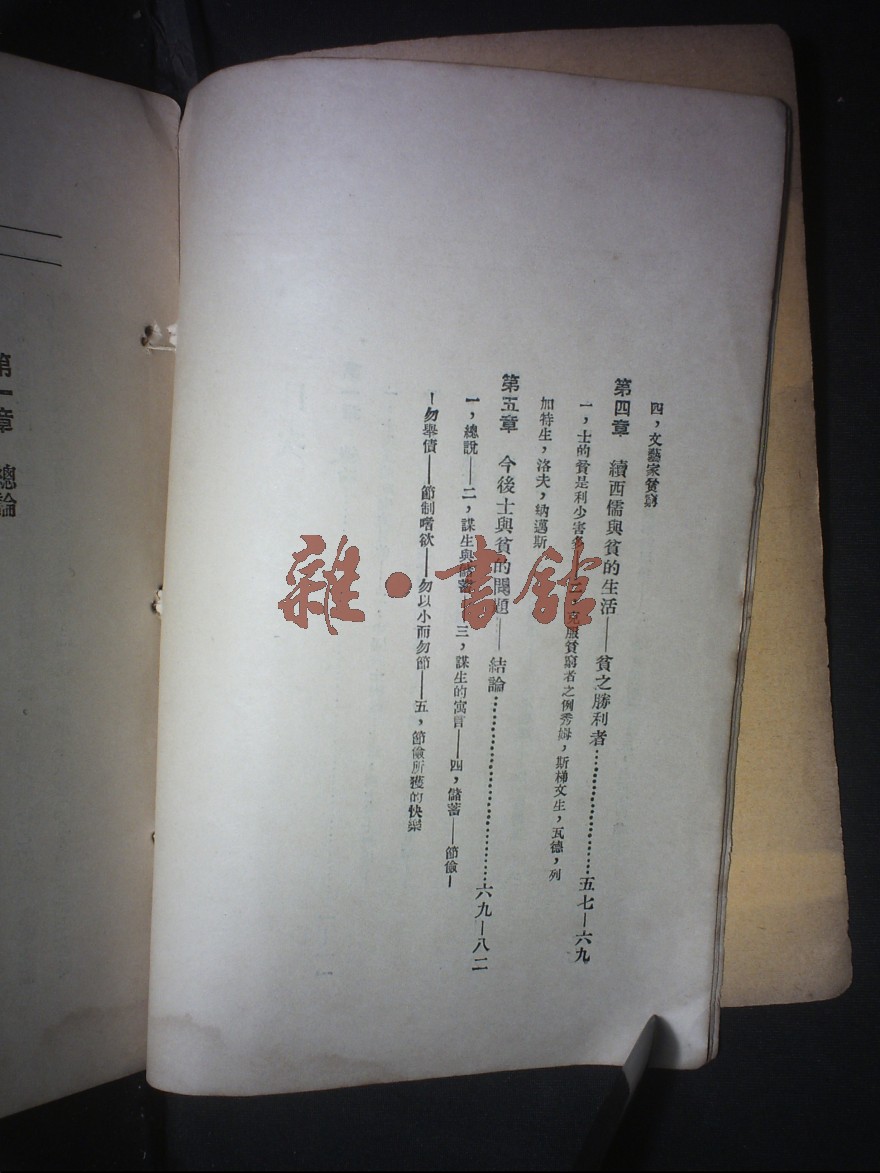 四，文藝家貧窮
第四章　續西儒與貧的生活——貧之勝利者…………………五七—六九
一，士的貧是利少害多——二，克服貧窮者之例秀姆，斯梯文生，瓦德，列
加特生，洛夫，納邁斯
第五章　今後士與貧的問題——結論…………………………六九—八二
一，總說——二，謀生與儲蓄——三，謀生的寓言——四，儲蓄——節儉—
—勿舉債——節制嗜欲——勿以小而勿節——五，節儉所獲的快樂
第一章　總論
雜·書館